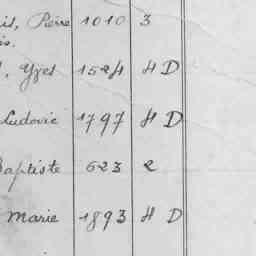 is, Pierre 1010 3
is.
, Yves 1524 4 D
Ludovic 1797 4 D
Baptiste 623 2
Marie 1893 4 D